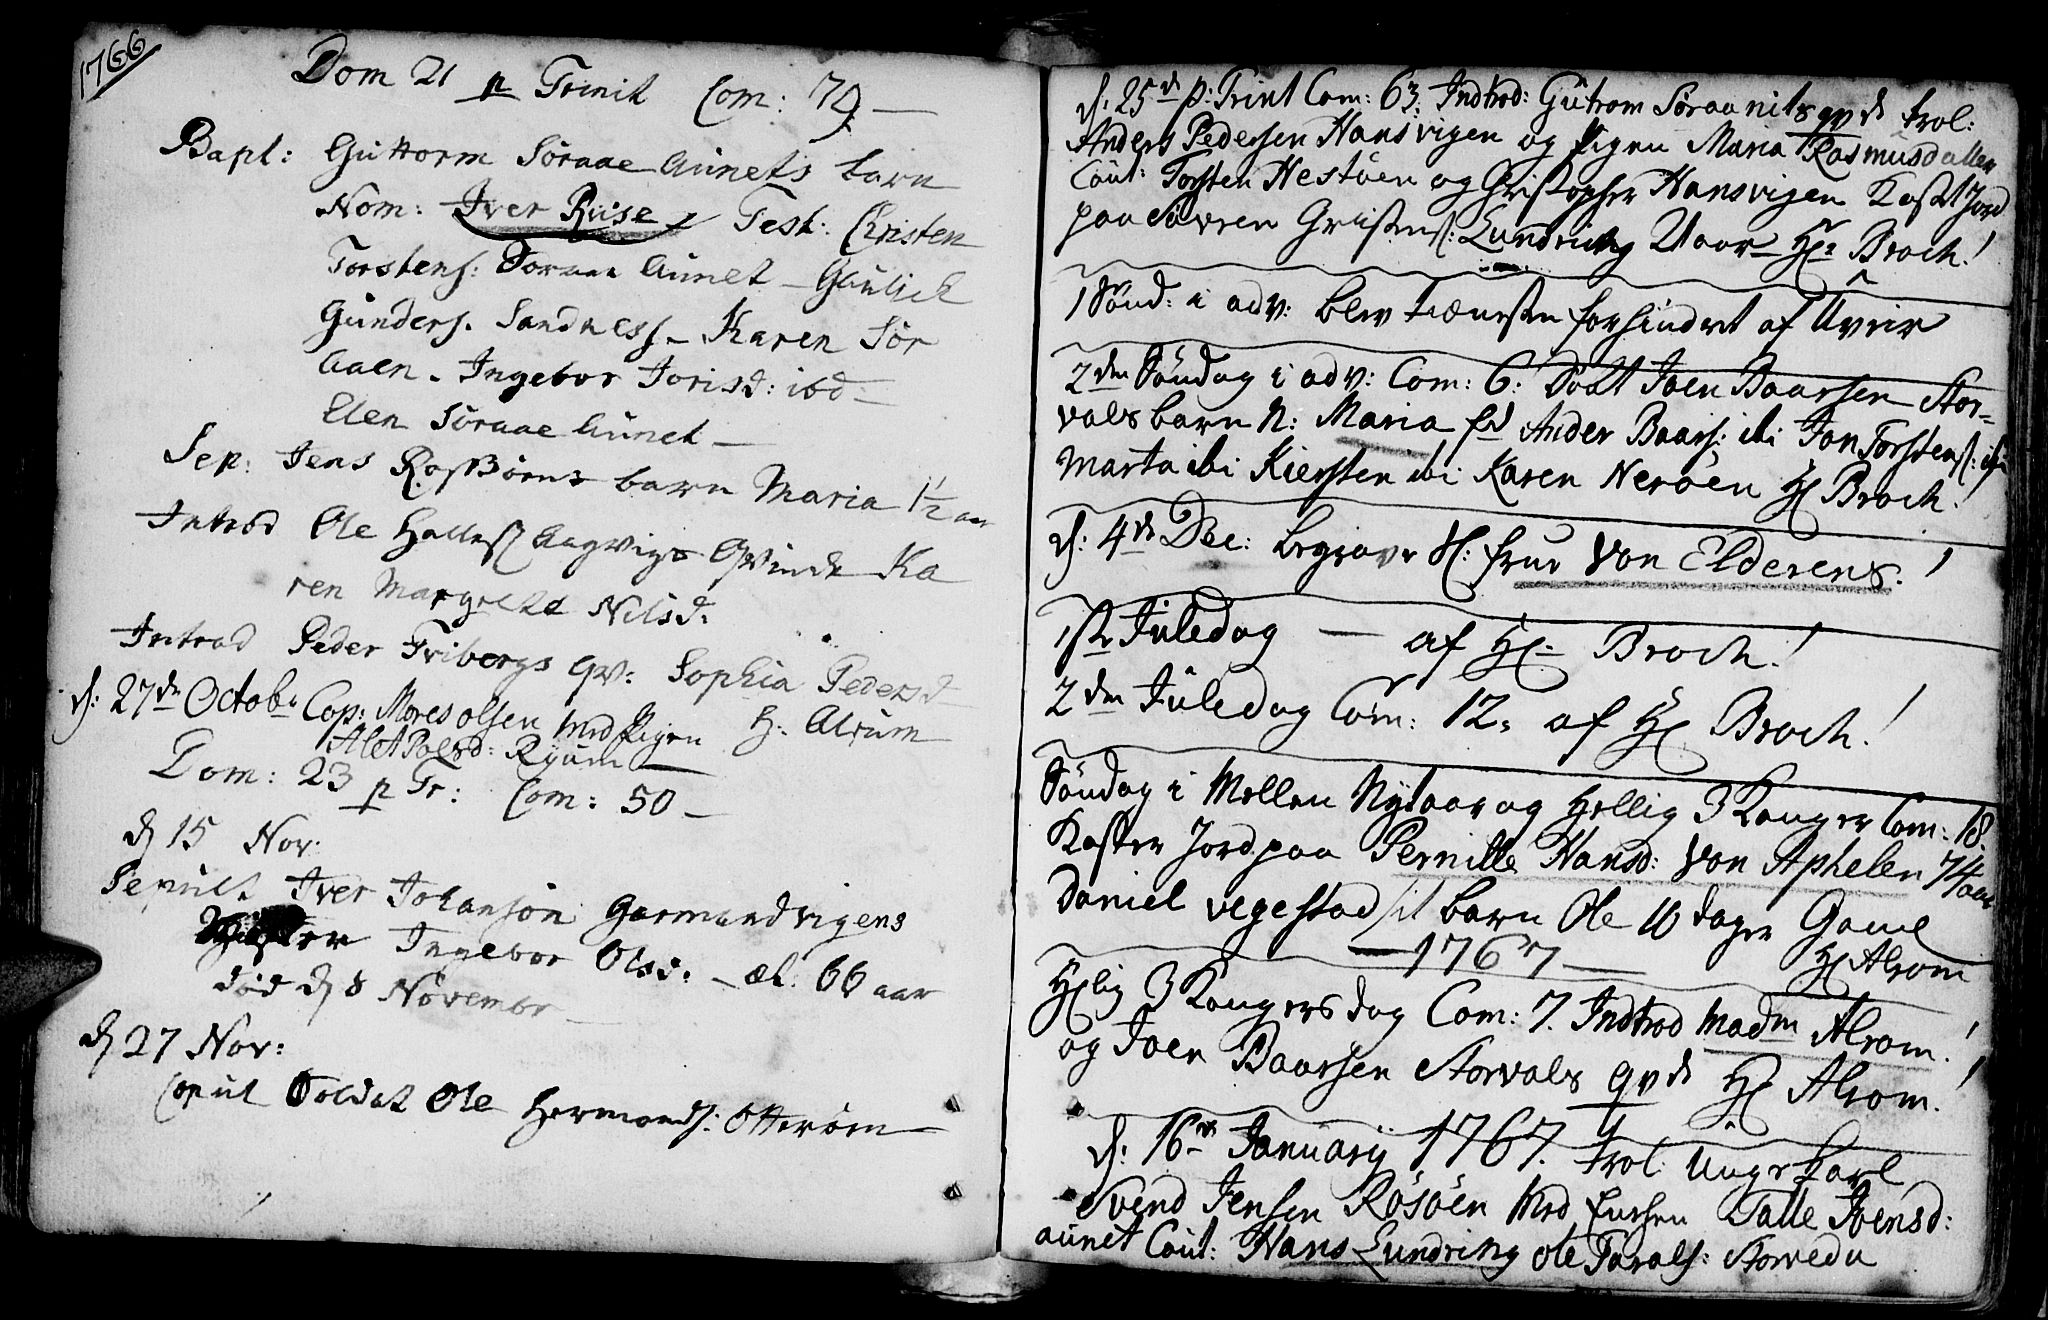 1766
Dom 21 p Trinit Com: 79 —
Bapt: Guttorm Søraae Aunets barn
Nom: Iver Riise Test: Christen
Torstens: Soraae Aunet —
Gunders. Sandness — Karen Sør
Aaen. Ingebor Jorisd: ibd —
Elen Søraae Aunet —
Sep: Jens Rasbørns barn Maria 1½ aar
Introd Ole Hallesz Aagvigs Qvinde Ka
ren Margrete Nilsd:
Introd Peder Fribergs qv: Sophia Pedersd
d: 27de Octobr Cop: Mores olsen med Pigen H: Alrum
Alet Poelsd: Ryum —
Dom: 23 p Tr: Com: 50 —
d 15 Nov:
Sepult Iver Johanson Garmandvigens
Ingebor Olsd: — æt: 66 aar
død d 8 Novembr —
d 27 Nov:
Copul Soldat Ole Hermands: Otterøen —
d: 25de p: Trint Com: 63. Indtrod: Gutrom Søraanits qvd trol:
Anders Pedersen Hansvigen og Pigen Maria Rasmusdatter
Caut: Torsten Nestøen og Christopher Hansvigen Kast Jord
paa Søvren Lundring Vaar — Hr: Broch!
1 Sønd: i adv: blev tienesten forhindret af Uveir
2den Søndag i adv: Com: 6: Døbt Joen Baarsen Stor=
vals barn N: Maria fd Ander Baars: ibi Jon Torstens: ibi
Marta ibi Kiersten ibi Karen Nerøen H Broch!
d: 4de Dec: begravet Sl: frue Von Elderens!
1ste Juledag — af Hr: Broch!
2den Juledag Com: 12. af H Broch!
Søndag i Mellen Nytaar og Hellig 3 Konger Com: 18.
Kaster Jord paa Pernille Hansd: Von Aphelen 74 aar
Daniel vegestad sit barn Ole 10 dager Gamel
— 1767 — H Alrom
Helig 3 Kongersdag Com: 7. Indtrod Madm Alrom!
og Joen Baarsen Storvals qvd H Alrom!
d: 16de January 1767. trol: Unge Karl
Svend Jensen Røsøen med Enchen Talle Joensd:
aunet Caut: Hans Lundring Ole Tarals: Storvedu